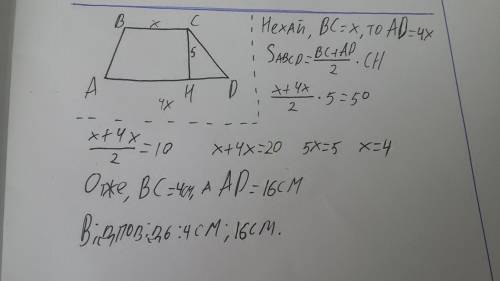 B x C
5
A H D
4x
Нехай, BC=x, то AD=4x
S ABCD = (BC+AD)/2 · CH
(x+4x)/2 · 5=50
(x+4x)/2 =10 x+4x=20 5x=5 x=4
Отже, BC=4см, а AD=16см
Відповідь: 4см; 16см.